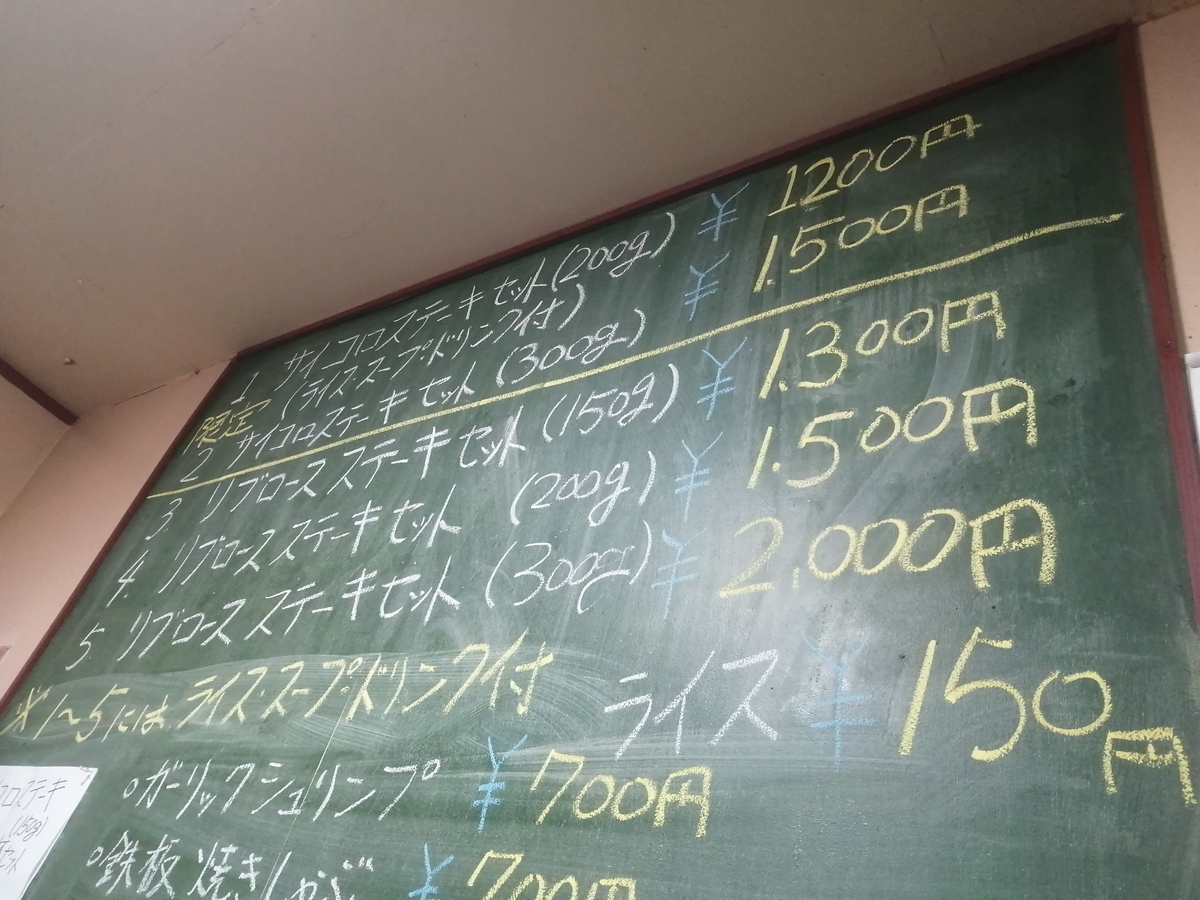 1 サイコロステーキセット(200g) ¥ 1200円
(ライス・スープ・ドリンク付)
限定
2 サイコロステーキセット (300g) ¥ 1.500円
3 リブロースステーキセット (150g) ¥ 1.300円
4. リブロースステーキセット (200g) ¥ 1.500円
5. リブロースステーキセット (300g) ¥ 2.000円
※1〜5には ライス・スープ・ドリンク付
ライス ¥ 150円
○ガーリックシュリンプ ¥ 700円
○鉄板焼きしゃぶ ¥ 700円
ロステーキ
(150g)
セット